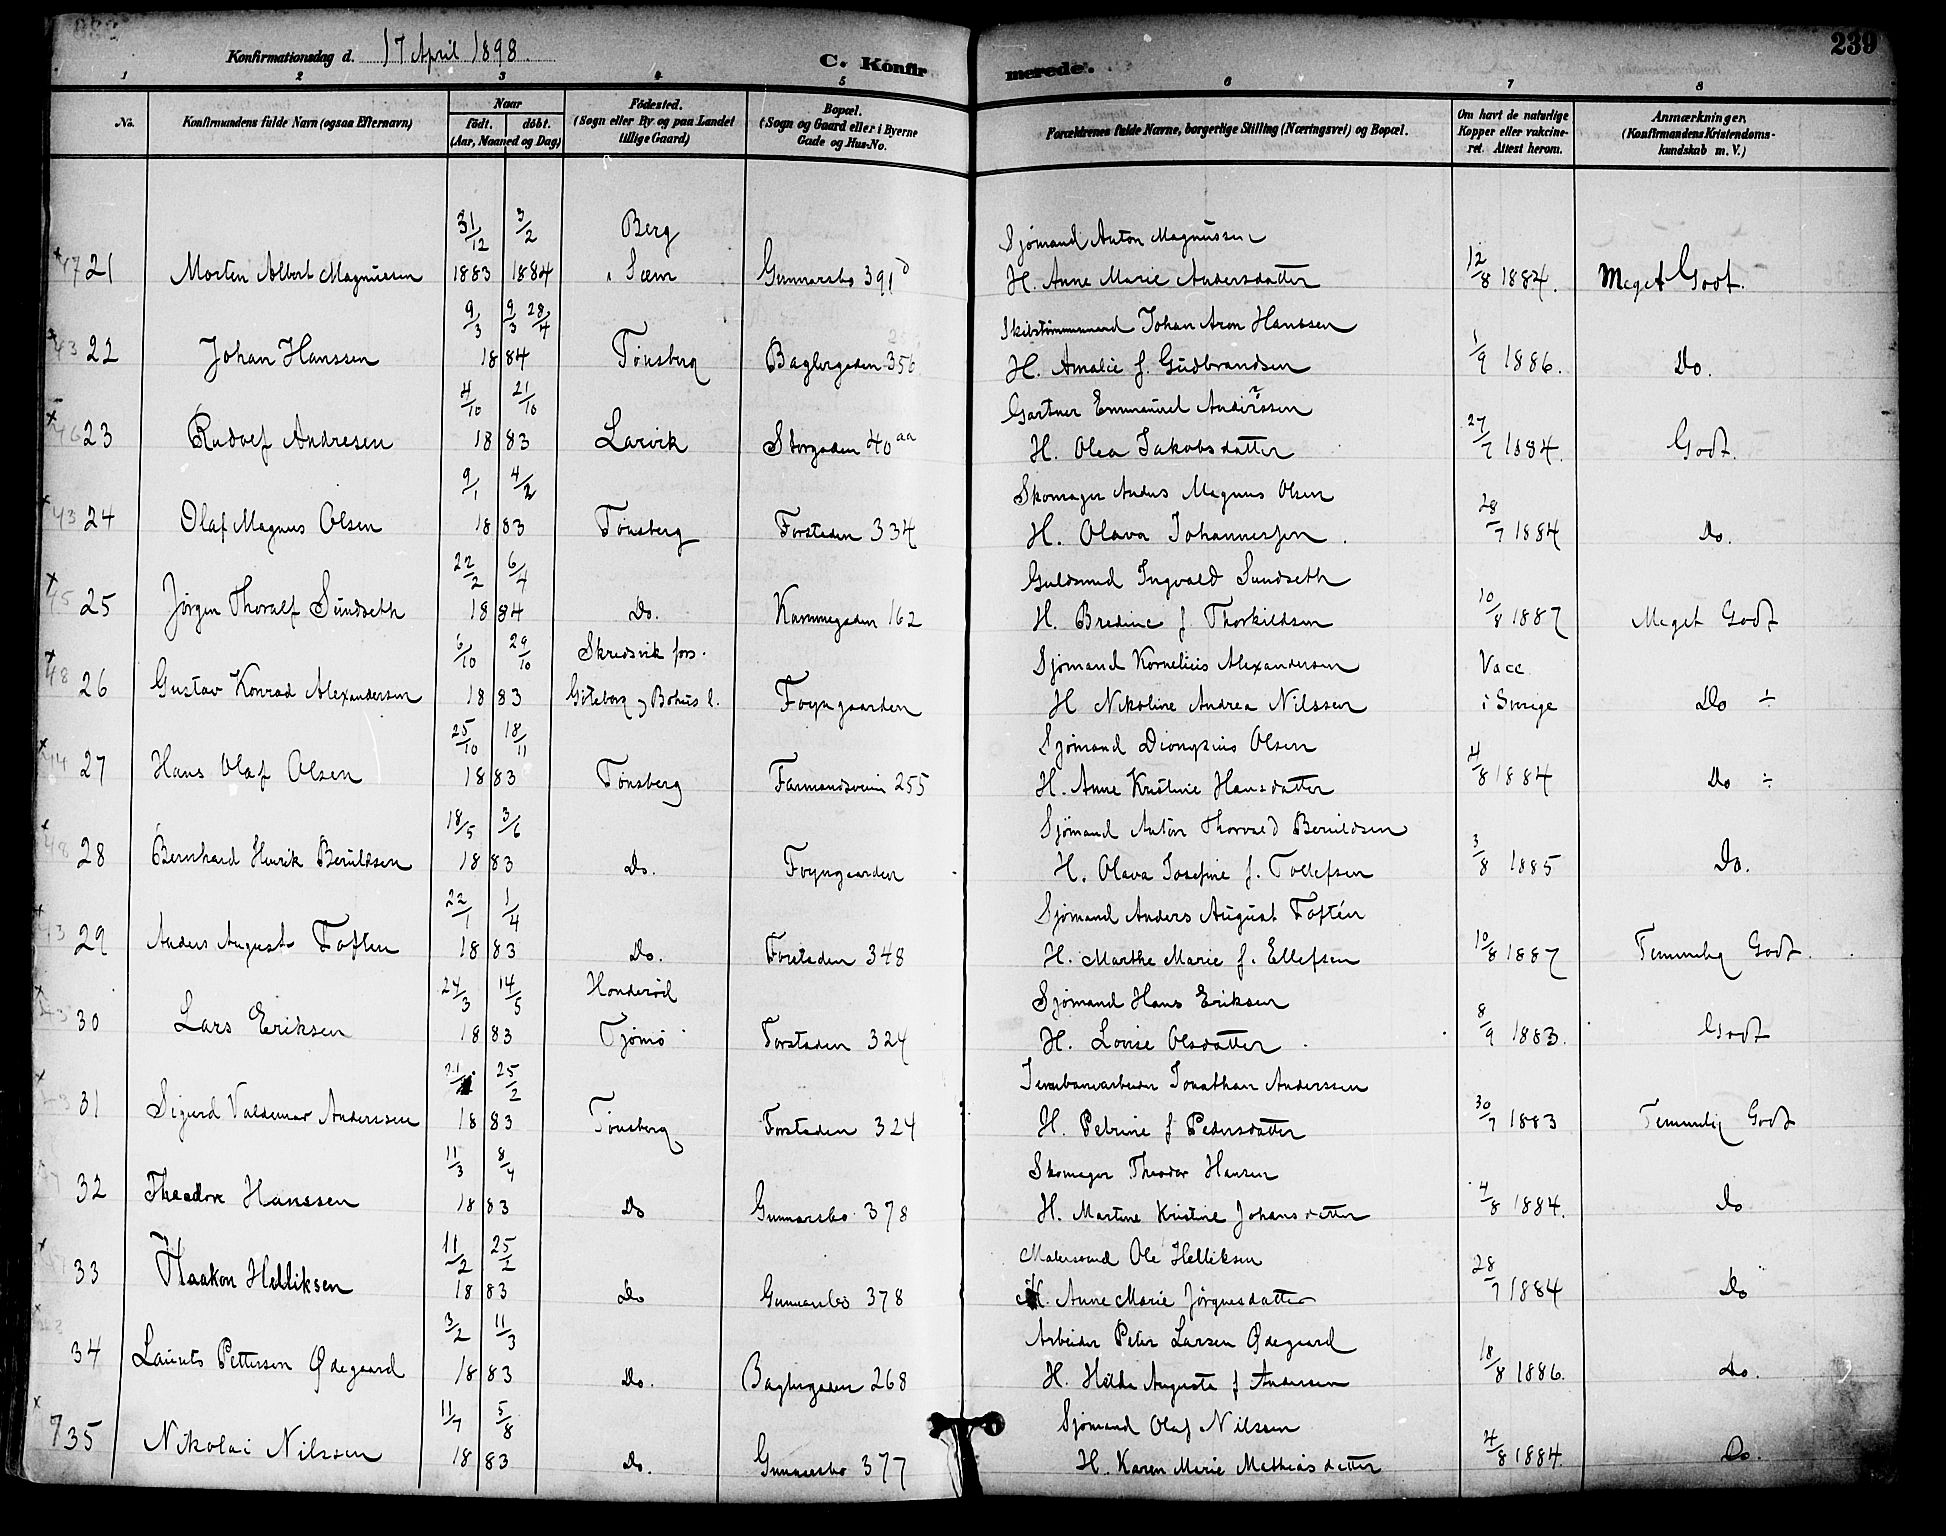 239
Konfirmationsdag d. 17 April 1898.
C. Konfirmerede.
1 2 3 4 5 6 7 8
No. Konfirmundens fulde Navn (ogsaa Efternavn) Naar født. døbt. (Aar, Maaned og Dag) Fødested. (Sogn eller By og paa Landet tillige Gaard) Bopæl. (Sogn og Gaard eller i Byerne Gade og Hus-No. Forældrenes fulde Navne, borgerlige Stilling (Næringsvei) og Bopæl. Om havt de naturlige Kopper eller vakcineret. Attest herom. Anmærkninger, (Konfirmandens Kristendomskundskab m. V.)
31/12 3/2 Berg Sjømand Anton Magnussen
21 Morten Albert Magnussen 1883 1884 Sem Gunnarsbo 391 d H. Anne Marie Andersdatter 12/8 1884. Meget Godt.
9/3 9/3 28/4 Skibstømmermand Johan Aron Hanssen
22 Johan Hanssen 1884 Tønsberg Baglergaden 356 H. Amalie f. Gudbrandsen 1/9 1886. Do.
4/10 21/10 Gartner Emmanuel Anderssen
23 Rudolf Andresen 1883 Larvik Storgaden 40 aa H. Olea Jakobsdatter 27/7 1884. Godt.
9/1 4/2 Skomager Anders Magnus Olsen
24 Olaf Magnus Olsen 1883 Tønsberg Forstaden 334 H. Olava Johannersen. 28/7 1884 Do.
22/2 6/4 Guldsmed Ingvald Sundseth
25 Jørgen Thoralf Sundseth 1884 Do. Kammegaden 162 H. Bredine f. Thorkildsen 10/8 1887 Meget Godt
6/10 29/10 Skredsvik fors. Sjømand Kornelius Alexandersen Vacc.
26 Gustav Konrad Alexandersen 1883 Göteborg og Bohus l. Foyngaarden H Nikoline Andrea Nilssen i Sverige Do ÷
25/10 18/11 Sjømand Dionysius Olsen
27 Hans Olaf Olsen 1883 Tønsberg Farmandsveien 255 H. Anne Kristine Hansdatter 4/8 1884 Do ÷
18/5 3/6 Sjømand Anton Thorvald Beruldsen
28 Bernhard Henrik Beruldsen 1883 Do. Foyngaarden H. Olava Josefine f. Tollefsen 3/8 1885 Do.
22/1 1/4 Sjømand Anders August Toftén
29 Anders August Toften 1883 Do. Forstaden 348 H. Marthe Marie f. Ellefsen 10/8 1887 Temmelig Godt.
24/3 14/5 Honderød Sjømand Hans Eriksen
30 Lars Eriksen 1883 Tjømø Forstaden 324 H. Lovise Olsdatter. 8/9 1883. Godt
25/2 Jernbanearbeider Jonathan Anderssen
31 Sigurd Valdemar Anderssen 1883 Tønsberg Forstaden 324 H. Petrine f Pedersdatter 30/7 1883 Temmelig Godt
11/3 8/4 Skomager Theodor Hansen
32 Theodor Hanssen 1883 Do Gunnarsbo 378 H. Martine Kristine Johansdatter 4/8 1884. Do
11/2 25/2 Malersvend Ole Helliksen
33 Haakon Helliksen 1883 Do Gunnarsbo 378 H. Anne Marie Jørgensdatter 28/7 1884 Do
3/2 11/3 Arbeider Peter Larsen Ødegaard
34 Laurits Pettersen Ødegaard 1883 Do. Baglergaden 268 H. Hilda Augusta f Andersen 18/8 1886. do.
11/7 5/8 Sjømand Olaf Nilssen
35 Nikolai Nilssen 1883 do. Gunnarsbo 377 H. Karen Marie Mathiasdatter 4/8 1884. Do.